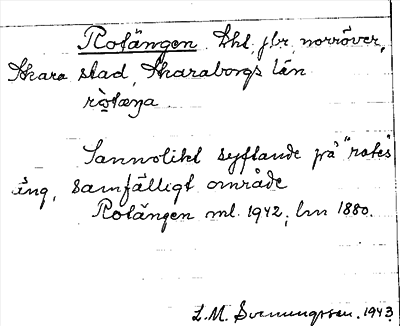 Rotängen. Khl, jbr, norröver,
Skara stad, Skaraborgs län
Sannolikt syftande på "rotes"
äng, samfälligt område
Rotängen ml. 1942, lm 1880.
L.M. Svennungsson. 1943